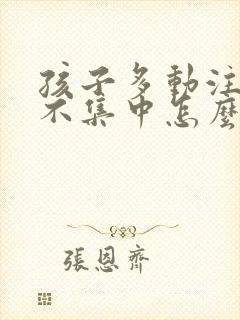 孩子多動注
不集中怎麼
張恩齊